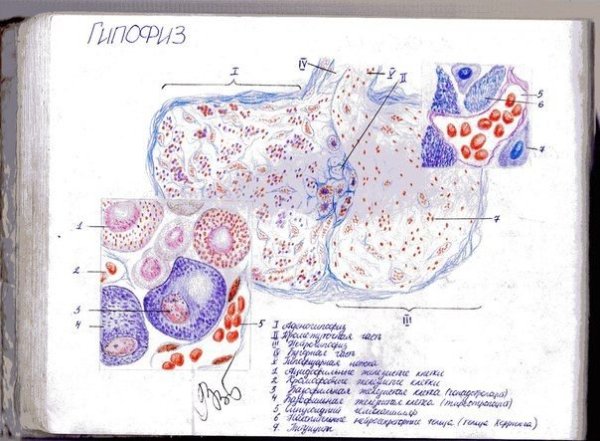 ГИПОФИЗ
I
IV
V
II
5
6
7
1
2
3
4
5
7
III
I Аденогипофиз
II Промежуточная часть
III Нейрогипофиз
IV Бугорная часть
V Гипофизарная ножка
1 Ацидофильные железистые клетки
2 Хромофобные железистые клетки
3 Базофильная железистая клетка (гонадотропоцит)
4 Базофильная железистая клетка (тиротропоцит)
5 Синусоидный гемокапилляр
6 Накопительные нейросекреторные тельца (тельца Херринга)
7 Питуицит